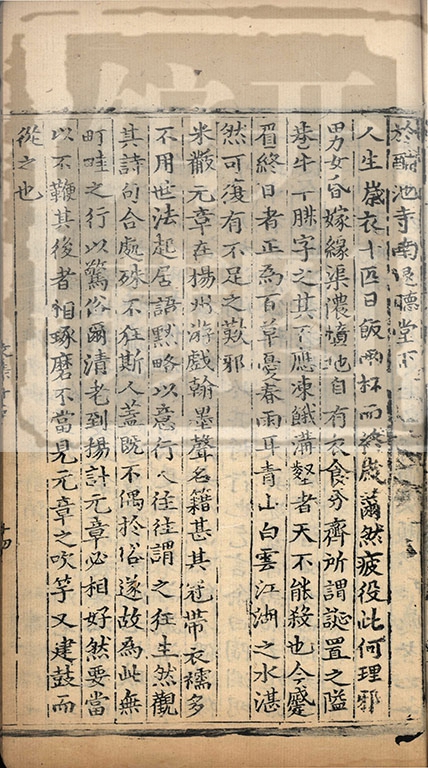 於酺池寺南退聽堂下
人生歲衣十匹日飯兩杯而終歲薾然疲役此何理邪
男女昏嫁緣渠儂墮地自有衣食分齊所謂誕置之隘
巷牛羊腓字之其不應凍餓溝壑者天不能殺也今蹙
眉終日者正為百草憂春雨耳青山白雲江湖之水湛
然可復有不足之歎邪
米黻元章在揚州游戲翰墨聲名籍甚其冠帶衣襦多
不用世法起居語默略以意行人往往謂之狂生然觀
其詩句合處殊不狂斯人蓋既不偶於俗遂故為此無
町畦之行以驚俗爾清老到揚計元章必相好然要當
以不鞭其後者相琢磨不當見元章之吹竽又建鼓而
從之也